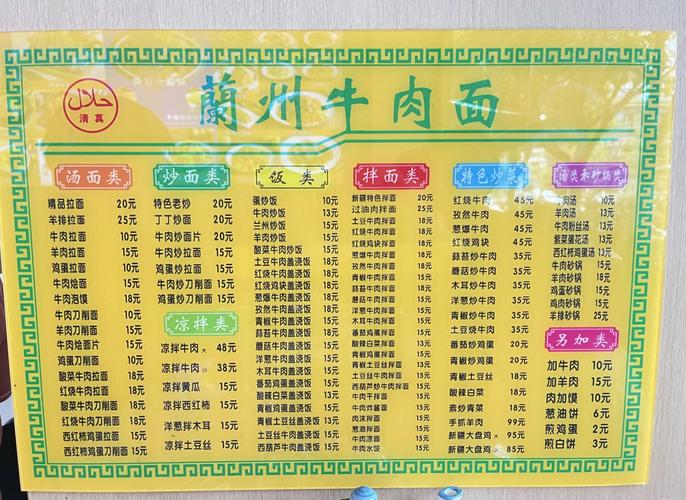 حلال
清真
蘭州牛肉面
汤面类
精品拉面 20元
羊排拉面 25元
牛肉拉面 10元
羊肉拉面 15元
鸡蛋拉面 10元
牛肉烩面 15元
牛肉泡馍 18元
牛肉刀削面 10元
羊肉刀削面 15元
牛肉烩面片 15元
鸡蛋刀削面 10元
酸菜牛肉拉面 18元
红烧牛肉拉面 18元
酸菜牛肉刀削面 18元
红烧牛肉刀削面 18元
西红柿鸡蛋拉面 15元
西红柿鸡蛋刀削面 15元
炒面类
特色老炒 20元
丁丁炒面 20元
牛肉炒面片 20元
牛肉炒拉面 15元
鸡蛋炒拉面 15元
牛肉炒刀削面 18元
鸡蛋炒刀削面 15元
凉拌类
凉拌牛肉大 48元
凉拌牛肉小 38元
凉拌黄瓜 15元
凉拌西红柿 15元
洋葱拌木耳 15元
凉拌土豆丝 15元
饭类
蛋炒饭 10元
牛肉炒饭 13元
兰州炒饭 15元
羊肉炒饭 15元
酸菜牛肉炒饭 15元
土豆牛肉盖浇饭 18元
红烧牛肉盖浇饭 18元
红烧鸡块盖浇饭 18元
葱爆牛肉盖浇饭 18元
孜然牛肉盖浇饭 18元
青椒牛肉盖浇饭 15元
蒜苔牛肉盖浇饭 18元
蘑菇牛肉盖浇饭 15元
洋葱牛肉盖浇饭 15元
木耳牛肉盖浇饭 15元
番茄鸡蛋盖浇饭 15元
酸辣白菜盖浇饭 13元
青椒鸡蛋盖浇饭 15元
青椒土豆丝盖浇饭 13元
土豆丝牛肉盖浇饭 15元
西葫芦牛肉盖浇饭 15元
拌面类
新疆特色拌面 20元
过油肉拌面 25元
土豆牛肉拌面 18元
红烧牛肉拌面 18元
红烧鸡块拌面 18元
葱爆牛肉拌面 18元
孜然牛肉拌面 18元
青椒牛肉拌面
蒜苔牛肉拌面 18元
蘑菇牛肉拌面
洋葱牛肉拌面
木耳牛肉拌面
番茄鸡蛋拌面
酸辣白菜拌面 13元
青椒鸡蛋拌面
青椒土豆丝拌面 13元
土豆丝牛肉拌面 15元
西葫芦炒牛肉拌面 15元
牛肉干拌面 15元
牛肉炸酱面 15元
葱油拌面
牛肉凉面
牛肉水饺
特色炒菜
红烧牛肉 45元
孜然牛肉 45元
葱爆牛肉 45元
红烧鸡块 45元
蒜苔炒牛肉 35元
蘑菇炒牛肉 35元
木耳炒牛肉 35元
洋葱炒牛肉 35元
青椒炒牛肉 35元
土豆烧牛肉 35元
番茄炒鸡蛋 20元
青椒炒鸡蛋 20元
青椒土豆丝 18元
酸辣白菜 18元
素炒青菜 18元
手抓羊肉 99元
新疆大盘鸡大 95元
新疆大盘鸡小 85元
汤类和砂锅类
牛肉汤 10元
羊肉汤 13元
牛肉粉丝汤 13元
紫菜蛋花汤 13元
西红柿鸡蛋汤 15元
牛肉砂锅 15元
羊肉砂锅 18元
鸡蛋砂锅 15元
鸡肉砂锅 15元
羊排砂锅 25元
另加类
加牛肉 10元
加羊肉 15元
肉加馍 10元
葱油饼 6元
煎鸡蛋 2元
煎白饼 3元